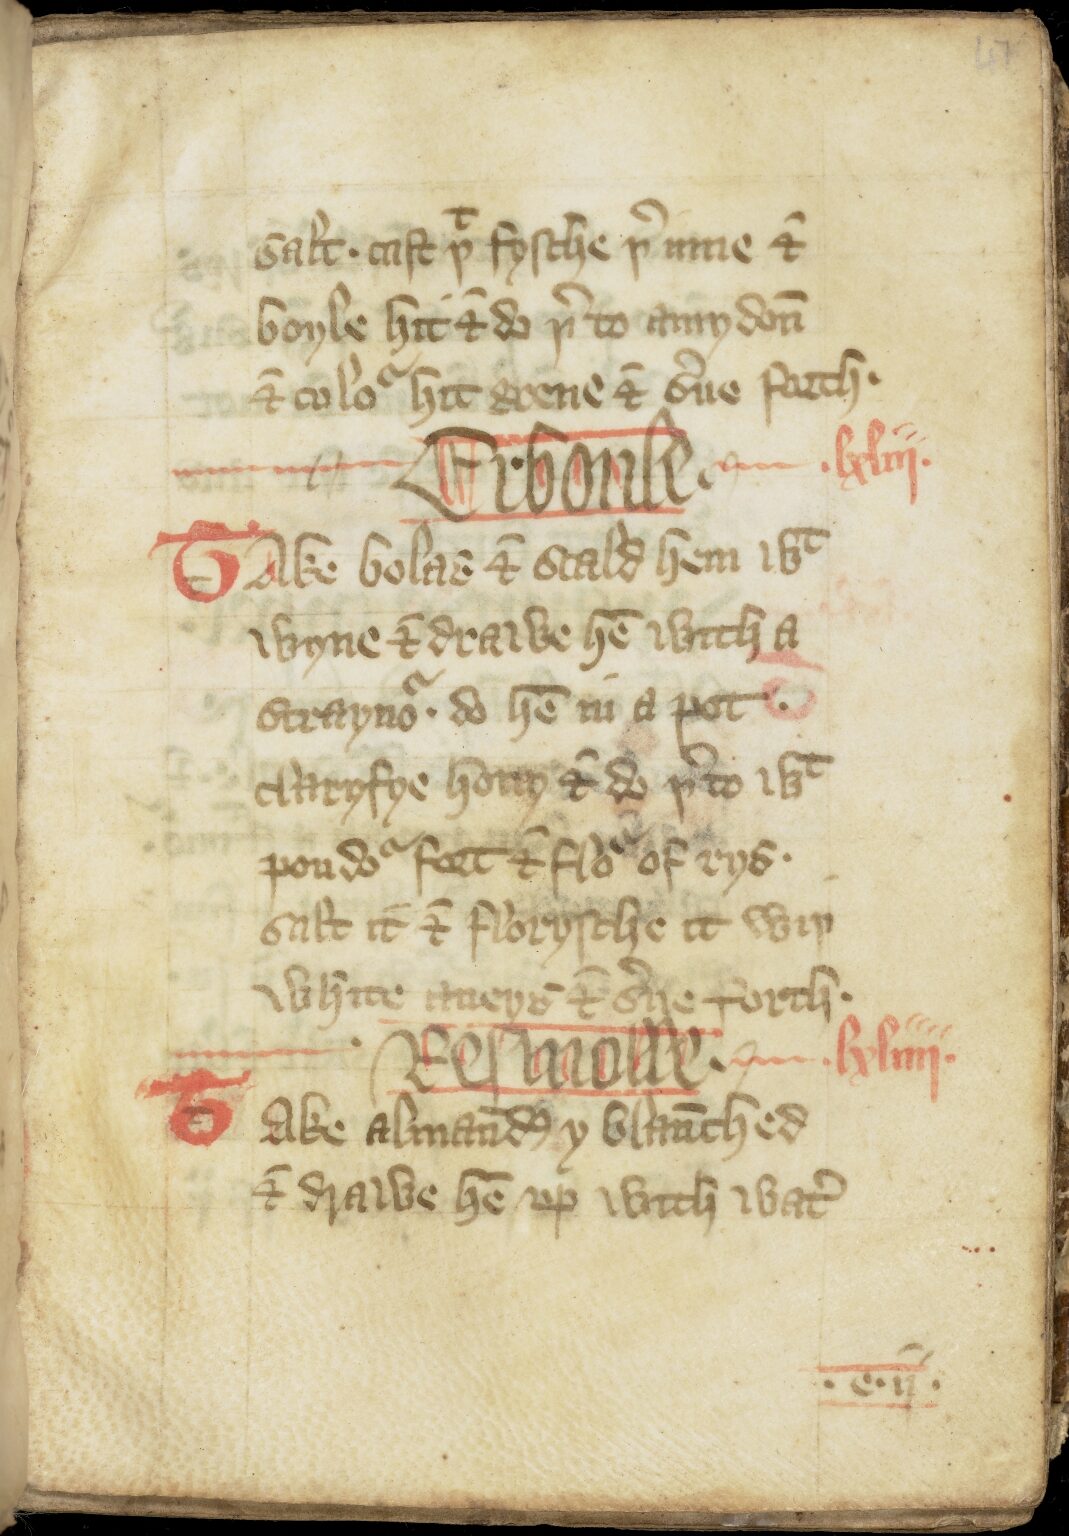 47
salt. cast þᵗ fysche þ͛ inne ⁊
boyle hit ⁊ do þ͛ to amydoū
⁊ coloʳ hit grene ⁊ s͛ue forth.
Erbonle. .lxliij.
TAke bolas ⁊ scald hem wᵗ
wyne ⁊ drawe hē with a
straynoʳ. do hē in a pot.
claryfye hony ⁊ do þ͛ to wᵗ
poudoʳ fort ⁊ floʳ of rys.
salt it ⁊ florysche it wiþ
white aneys ⁊ s͛ue forth.
Resmolle. .lxliiij.
TAke almaūdꝭ y blaūched
⁊ drawe hē up with wat͛
.e.ij.